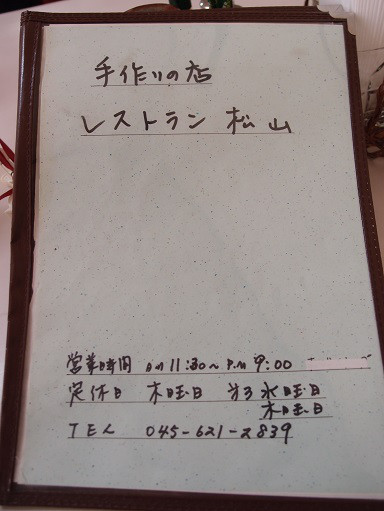 手作りの店
レストラン 松山
営業時間 am 11:30〜P.M 9:00
定休日 木曜日 第3水曜日
木曜日
TEL 045-621-2839